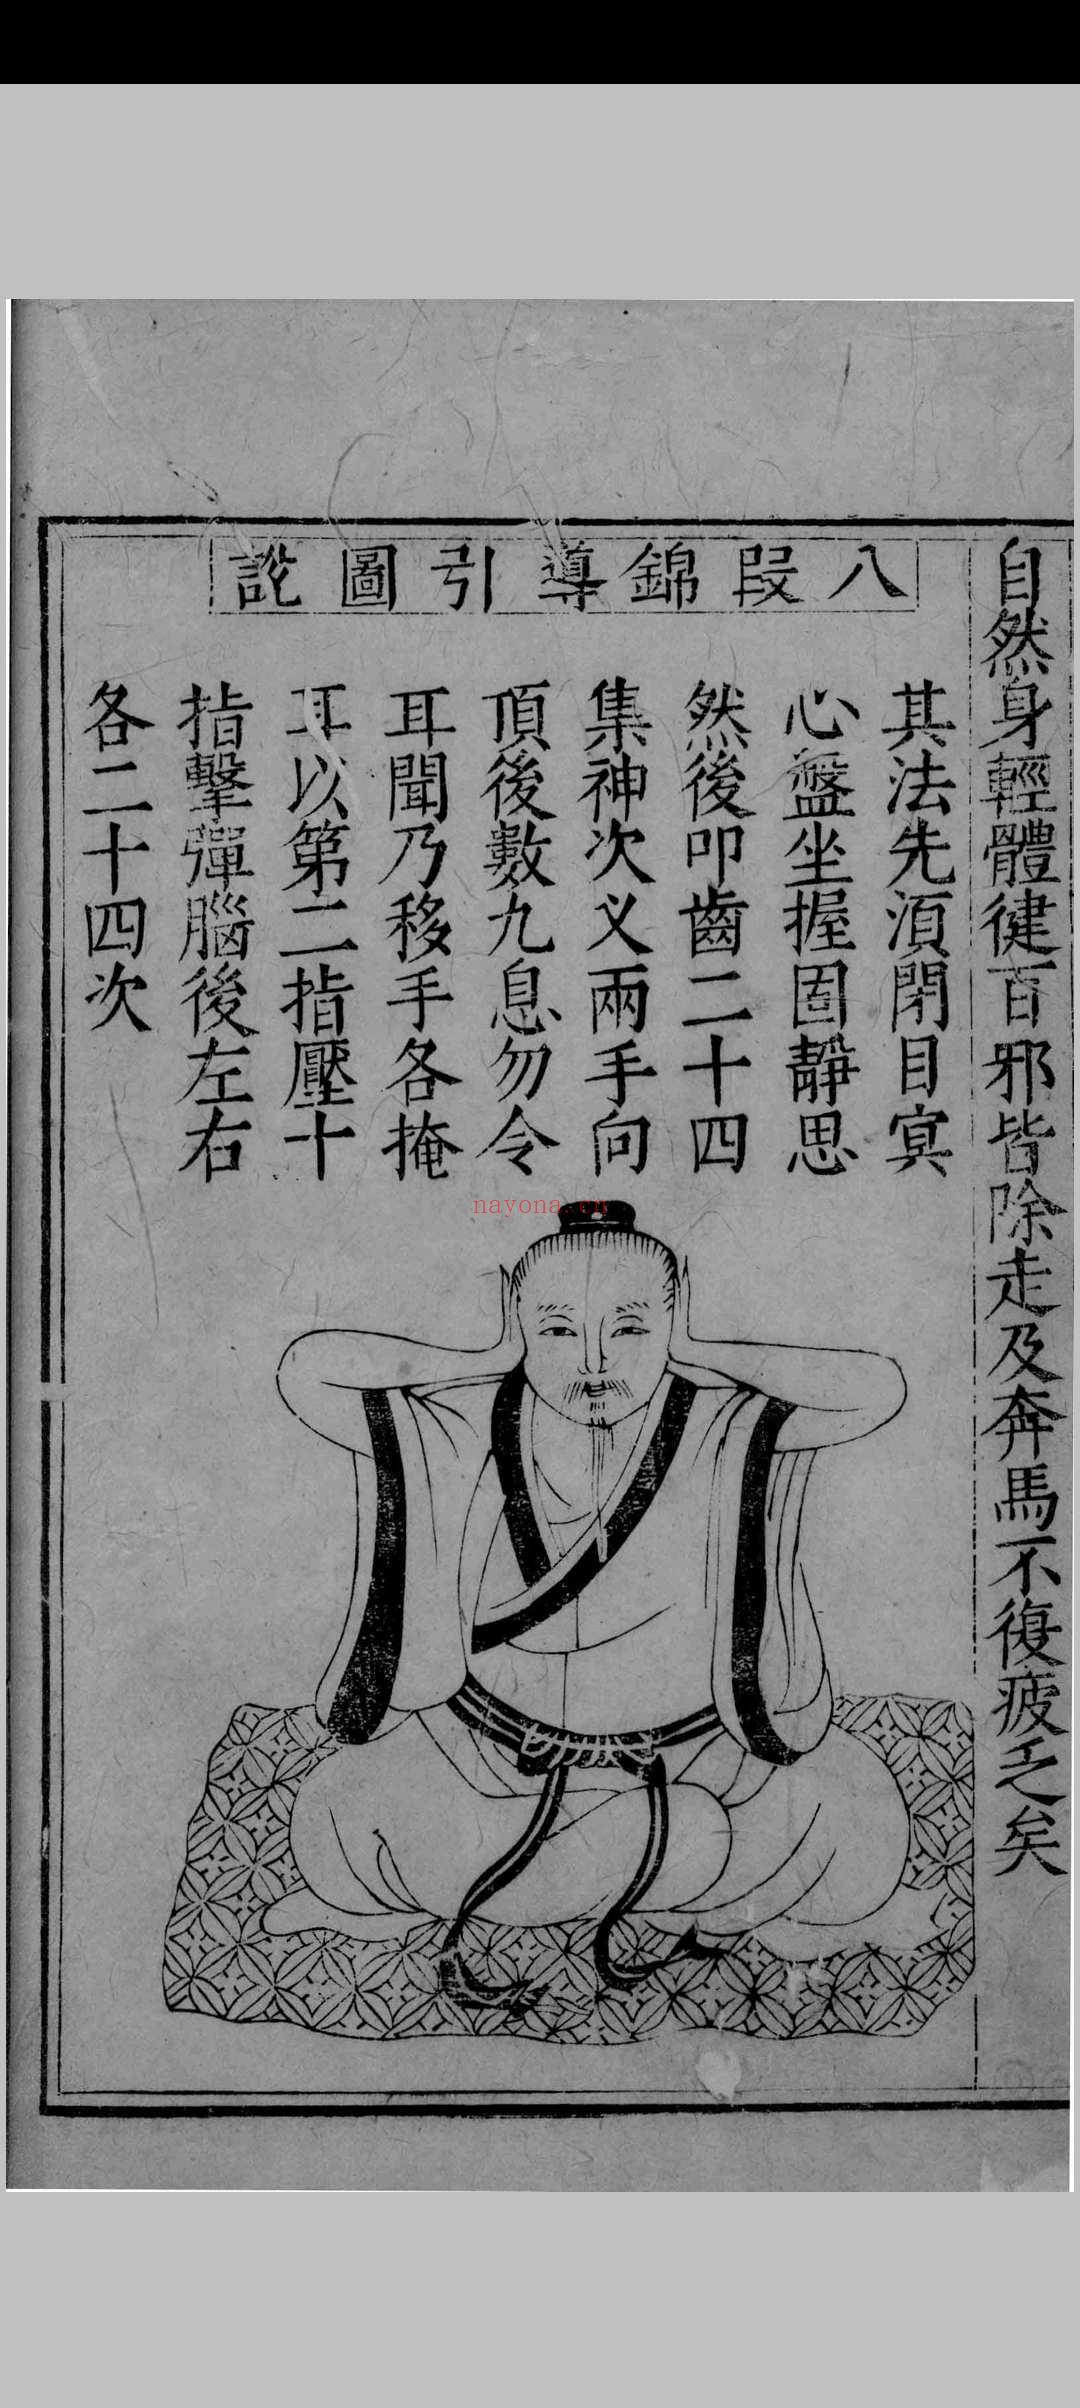 自然身輕體健百邪皆除走及奔馬不復疲乏矣
八段錦導引圖訣
其法先須閉目冥
心盤坐握固靜思
然後叩齒二十四
集神次叉兩手向
頂後數九息勿令
耳聞乃移手各掩
耳以第二指壓中
指擊彈腦後左右
各二十四次
nayona.cn